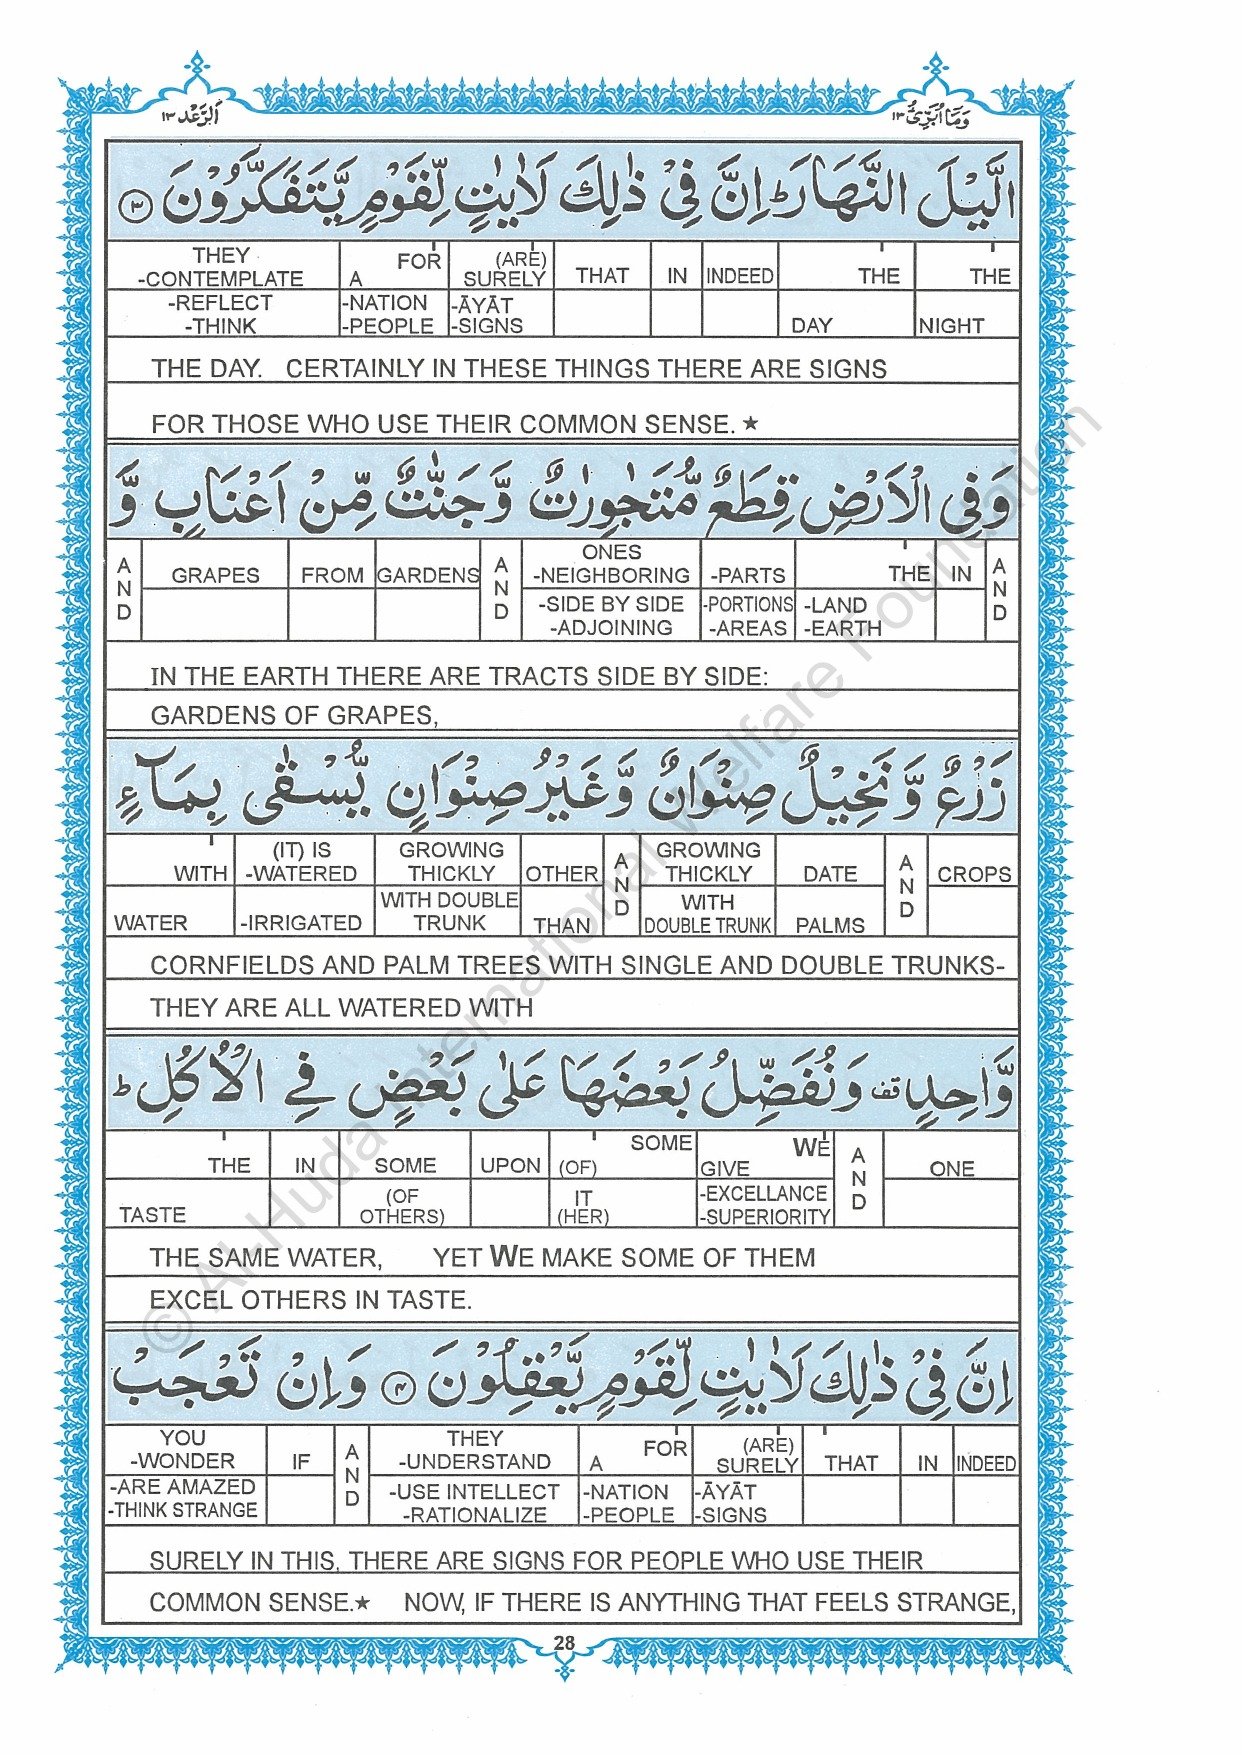 اَلرَّعْد ١٣
وَمَآ اُبَرِّئُ ١٣
الَّيْلَ النَّهَارَ ؕ اِنَّ فِيْ ذٰلِكَ لَاٰيٰتٍ لِّقَوْمٍ يَّتَفَكَّرُوْنَ ۝٣
THEY FOR (ARE)
-CONTEMPLATE A SURELY THAT IN INDEED THE THE
-REFLECT -NATION -ĀYĀT
-THINK -PEOPLE -SIGNS DAY NIGHT
THE DAY. CERTAINLY IN THESE THINGS THERE ARE SIGNS
FOR THOSE WHO USE THEIR COMMON SENSE. ★
وَفِي الْاَرْضِ قِطَعٌ مُّتَجٰوِرٰتٌ وَّجَنّٰتٌ مِّنْ اَعْنَابٍ وَّ
AND GRAPES FROM GARDENS AND ONES -NEIGHBORING -PARTS THE IN AND
-SIDE BY SIDE -PORTIONS -LAND
-ADJOINING -AREAS -EARTH
IN THE EARTH THERE ARE TRACTS SIDE BY SIDE:
GARDENS OF GRAPES,
زَرْعٌ وَّنَخِيْلٌ صِنْوَانٌ وَّغَيْرُ صِنْوَانٍ يُّسْقٰى بِمَآءٍ
(IT) IS GROWING GROWING
WITH -WATERED THICKLY OTHER AND THICKLY DATE AND CROPS
WITH DOUBLE WITH
WATER -IRRIGATED TRUNK THAN DOUBLE TRUNK PALMS
CORNFIELDS AND PALM TREES WITH SINGLE AND DOUBLE TRUNKS-
THEY ARE ALL WATERED WITH
وَّاحِدٍ ۫ وَنُفَضِّلُ بَعْضَهَا عَلٰى بَعْضٍ فِي الْاُكُلِ ؕ
SOME WE
THE IN SOME UPON (OF) GIVE AND ONE
(OF IT -EXCELLANCE
TASTE OTHERS) (HER) -SUPERIORITY
THE SAME WATER, YET WE MAKE SOME OF THEM
EXCEL OTHERS IN TASTE.
اِنَّ فِيْ ذٰلِكَ لَاٰيٰتٍ لِّقَوْمٍ يَّعْقِلُوْنَ ۝٤ وَاِنْ تَعْجَبْ
YOU THEY FOR (ARE)
-WONDER IF AND -UNDERSTAND A SURELY THAT IN INDEED
-ARE AMAZED -USE INTELLECT -NATION -ĀYĀT
-THINK STRANGE -RATIONALIZE -PEOPLE -SIGNS
SURELY IN THIS, THERE ARE SIGNS FOR PEOPLE WHO USE THEIR
COMMON SENSE.★ NOW, IF THERE IS ANYTHING THAT FEELS STRANGE,
28
© Al-Huda International Welfare Foundation